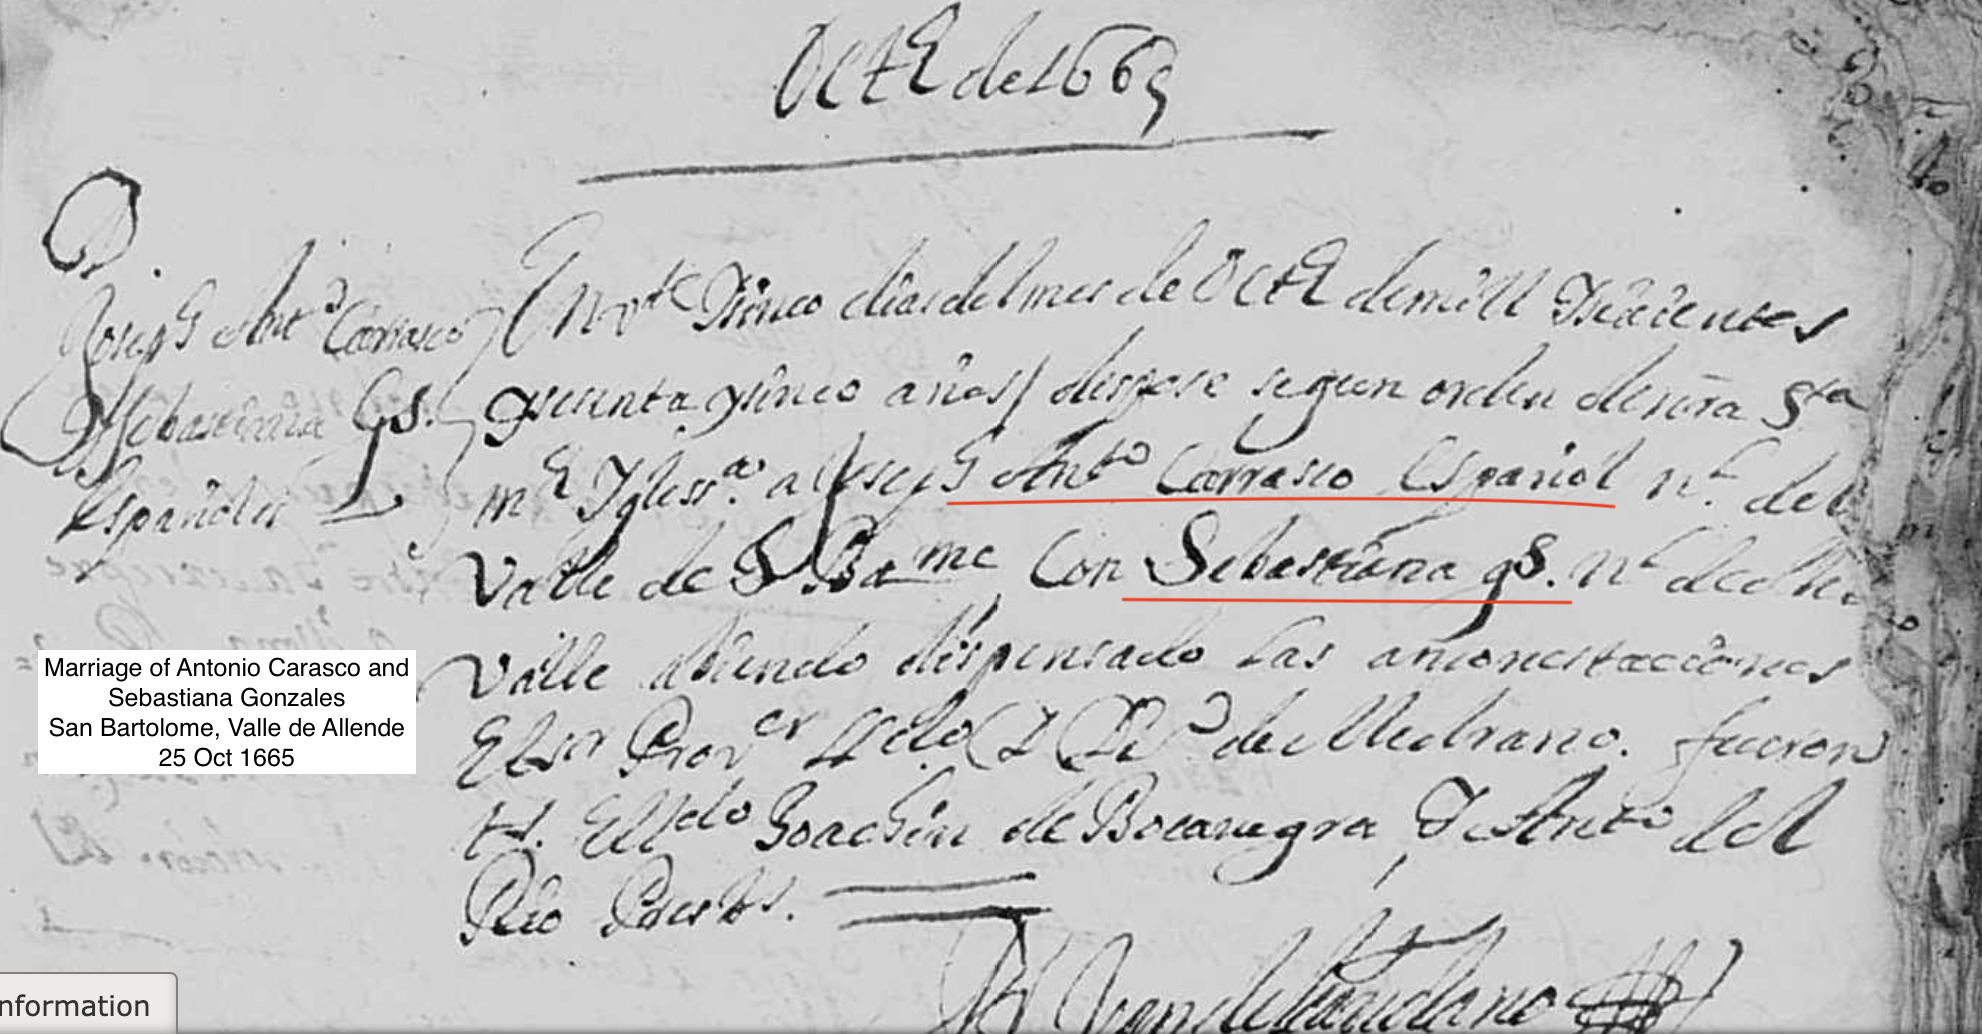 Octe de 1665
Joseph Antº Carrasco
Sebastiana Gs.
Españoles
En vte Sinco dias del mes de Octe de mill Seicientos
y sesenta y sinco años/ despose segun orden de nra Sta
me Iglessa. a Joseph Antº Carrasco Español nl. del
Valle de S. Bame Con Sebastiana gs. nl de dho
Valle abiendo dispensado las amonestaciones
El sr Provor lldo de Medrano. fueron
ts. El lldo Joachin de Bocanegra, Y Antº del
Rio Prests.
Marriage of Antonio Carasco and
Sebastiana Gonzales
San Bartolome, Valle de Allende
25 Oct 1665
nformation